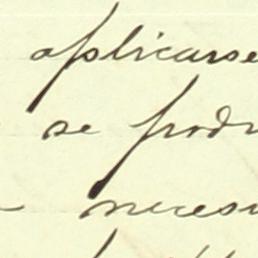 aplicarse
se prod
neces